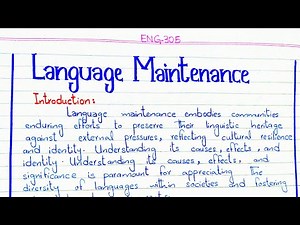 ENG-305
Language Maintenance
Introduction:
Language maintenance embodies communities
enduring efforts to preserve their linguistic heritage
against external pressures, reflecting cultural resilience
and identity. Understanding its causes, effects, and
identity. Understanding its causes, effects, and
significance is paramount for appreciating the
diversity of languages within societies and fostering